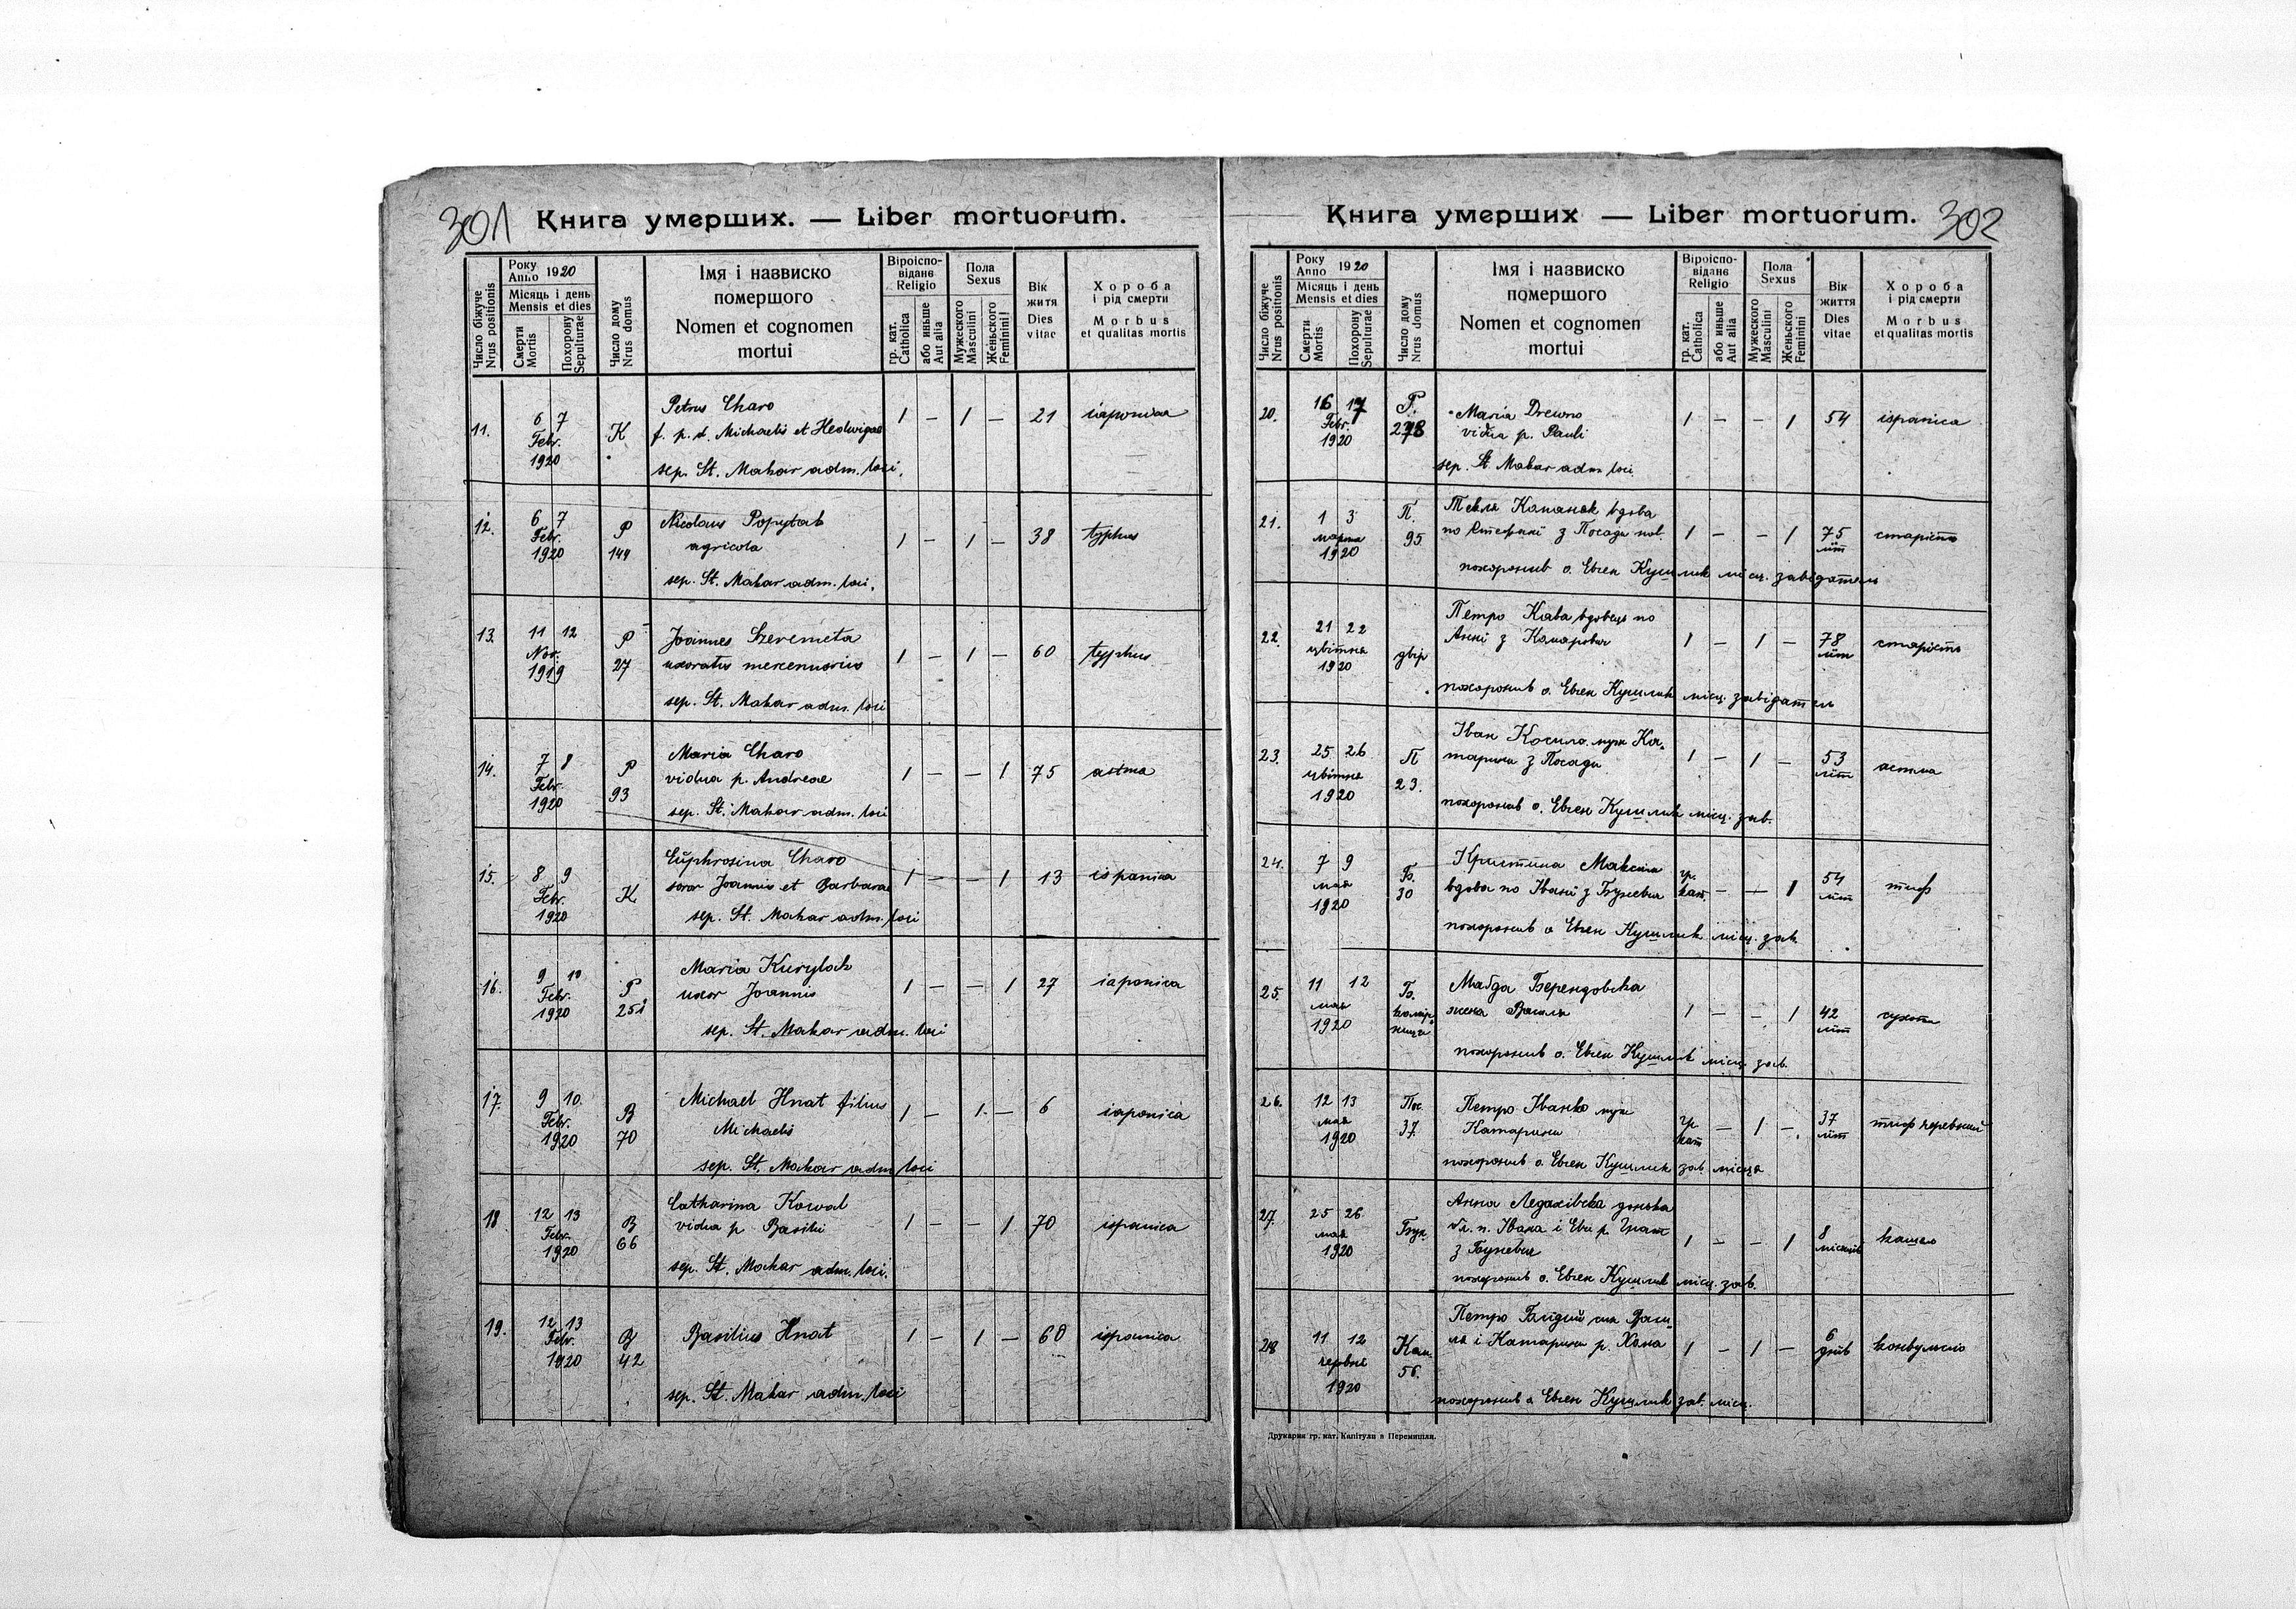 301 Книга умерших. — Liber mortuorum.
Число біжуче Nrus positionis
Року Anno 1920
Місяць і день Mensis et dies
Смерти Mortis
Похорону Sepulturae
Число дому Nrus domus
Імя і назвиско
помершого
Nomen et cognomen
mortui
Віроіспо-
відане
Religio
гр. кат. Catholica
або иньше Aut alia
Пола
Sexus
Мужеского Masculini
Женьского Feminini
Вік
житя
Dies
vitae
Хороба
і рід смерти
Morbus
et qualitas mortis
11. 6 7 Febr. 1920 K Petrus Charo 1 — 1 — 21
f. p. d. Michaelis et Hedwigae
sep. St. Makar adm. loci.
12. 6 7 Febr. 1920 P 144 Nicolaus Popytak 1 — 1 — 38 typhus
agricola
sep. St. Makar adm. loci.
13. 11 12 Nov. 1919 P 27 Joannes Szeremeta 1 — 1 — 60 typhus
uxoratus mercenarius
sep. St. Makar adm. loci
14. 7 8 Febr. 1920 P 93 Maria Charo 1 — — 1 75 astma
vidua p. Andreae
sep. St. Makar adm. loci
15. 8 9 Febr. 1920 K Euphrosina Charo 1 — — 1 13 ispanica
soror Joannis et Barbarae
sep. St. Makar adm. loci
16. 9 10 Febr. 1920 P 251 Maria Kuryłoch 1 — — 1 27 iaponica
uxor Joannis
sep. St. Makar adm. loci
17. 9 10. Febr. 1920 B 70 Michael Hnat filius 1 — 1 — 6 iaponica
Michaelis
sep. St. Makar adm loci
18 12 13 Febr. 1920 B 66 Catharina Kowal 1 — — 1 70 ispanica
vidua p. Basilii
sep. St. Makar adm. loci.
19. 12 13 Febr. 1920 B 42 Basilius Hnat 1 — 1 — 60 ispanica
sep. St. Makar adm. loci
Книга умерших — Liber mortuorum. 302
Число біжуче Nrus positionis
Року Anno 1920
Місяць і день Mensis et dies
Смерти Mortis
Похорону Sepulturae
Число дому Nrus domus
Імя і назвиско
помершого
Nomen et cognomen
mortui
Віроіспо-
відане
Religio
гр. кат. Catholica
або иньше Aut alia
Пола
Sexus
Мужеского Masculini
Женьского Feminini
Вік
життя
Dies
vitae
Хороба
і рід смерти
Morbus
et qualitas mortis
20. 16 17 Febr. 1920 P. Maria Drewno 1 — — 1 54 ispanica
vidua p. Pauli
sep. St. Makar adm loci
21. 1 3 марта 1920 П. 95. Текля вдова 1 — — 1 75 літ старість
по Стефані з Посади
похоронив о. Евген Кушлик місц. завідатель
22. 21 22 цвітня 1920 двір Петро Кава вдовець по 1 — 1 — 78 літ старість
Анні з
похоронив о. Евген Кушлик місц. завідатель
23. 25 26 цвітня 1920 П 23. Іван Косило муж Ка- 1 — 1 — 53 літ астма
тарини з Посади
похоронив о. Евген Кушлик місц. зав.
24. 7 9 мая 1920 Б. 30 Кристина гр. кат. — — 1 54 літ тиф
вдова по Івані з
похоронив о Евген Кушлик місц. зав.
25. 11 12 мая 1920 Б. Маґда Берендовска 1 — — 1 42 літ сухоти
жена Василя
похоронив о. Евген Кушлик місц. зав.
26. 12 13 мая 1920 Пос. 37. Петро Іванко муж гр. кат — 1 — 37 літ тиф
Катарини
похоронив о. Евген Кушлик зав. місця
27. 25 26 мая 1920 Анна донька 1 — — 1 8 місяців кашель
Івана і Еви р. Гнат
з
похоронив о. Евген Кушлик місц. зав.
28 11 12 червня 1920 Петро син Васи- 1 — 1 — 6 днів
ля і Катарини р.
похоронив о Евген Кушлик зав. місц.
Друкарня гр. кат. Капітули в Перемишли.